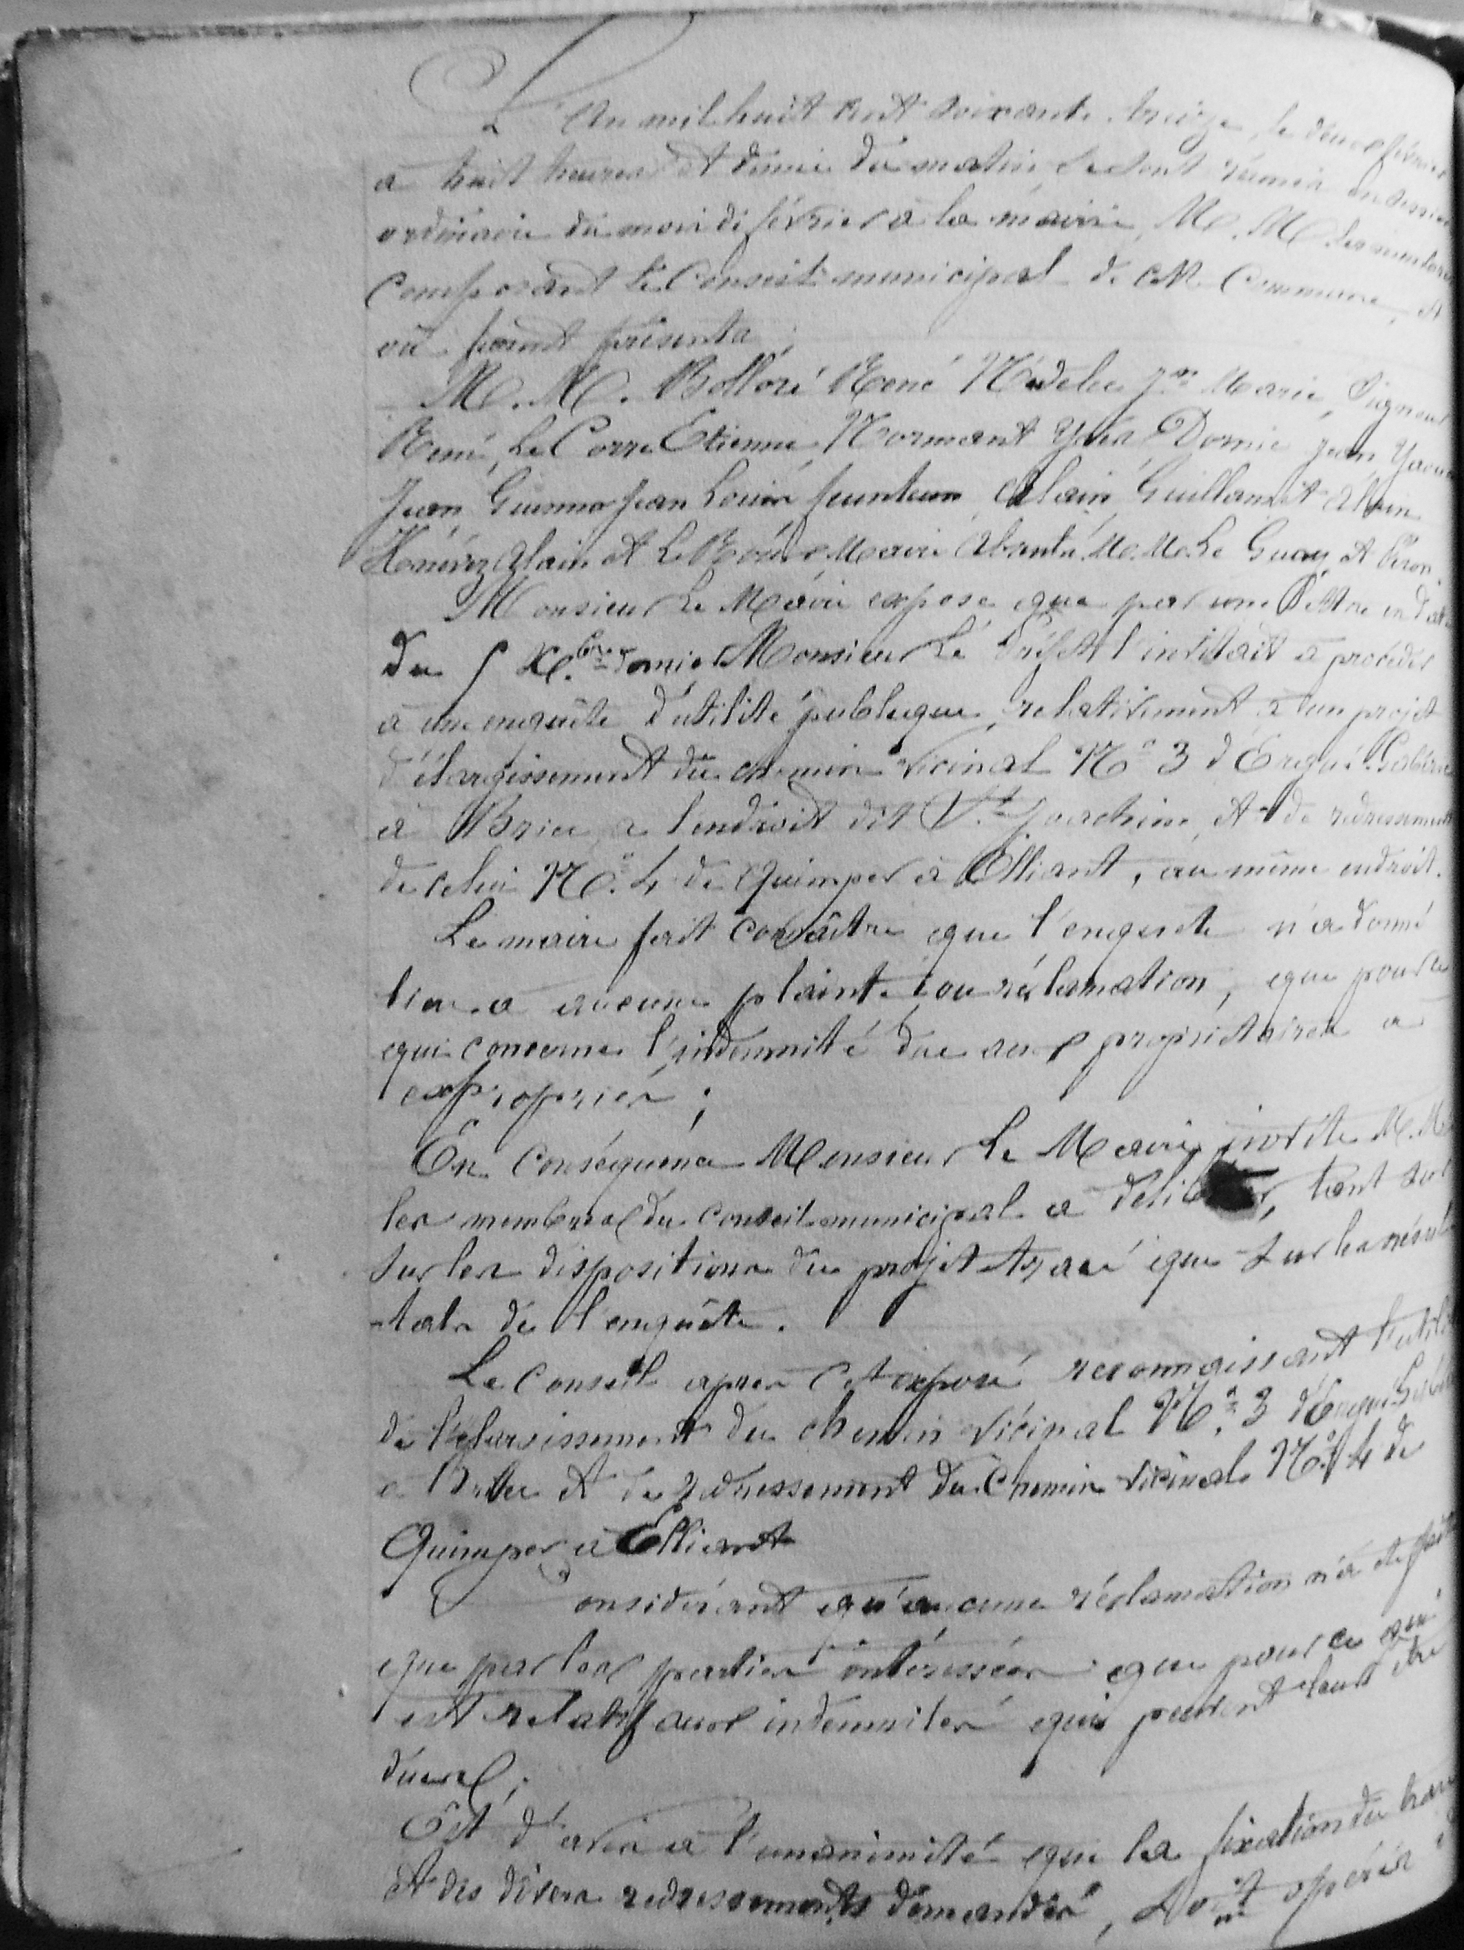 L'An mil huit cent soixante treize, le deux février
a huit heures et demie du matin se sont réunis en session
ordinaire du mois de février à la mairie, M. M. les membres
composant le Conseil municipal de cette Commune, et
où furent présents;
M. M. Bolloré René Nédelec Jn Marie, Signour
René, Le Corre Etienne, Normant Yves, Dornic Jean, Yaouanc
Jean, Guennou Jean Louis, feunteun Alain, Guillamet Alain
Hénérez Alain et Le Maire Absents M. M. Le Guay et
Monsieur Le Maire expose que par une lettre en date
du 5 Xbre dernier Monsieur Le Préfet l'invitait à procéder
a une enquête d'utilité publique, relativement a un projet
d'élargissement du chemin vicinal No 3 d'Ergué-Gabéric
à Briec, a l'endroit dit St Joachim, et de redressement
de celui No. 4 de Quimper à Elliant, au même endroit.
Le maire fait connaître que l'enquête n'a donné
lieu a aucune plainte ou réclamation, que pour ce
qui concerne l'indemnité due aux propriétaires a
exproprier;
En conséquence Monsieur Le Maire invite M. M.
les membres du conseil municipal a délibérer, tant sur
sur les dispositions du projet tracé que sur les résul
-tats de l'enquête.
Le Conseil après cet exposé reconnaissant l'utilité
de l'élargissement du chemin vicinal No. 3 d'Ergué-Gabéric
a Briec et de redressement du Chemin vicinal No. 4 de
Quimper a Elliant
Considérant qu'aucune réclamation n'a été faite
que par les parties intéressées que pour ce qui
est relatif aux indemnités qui peuvent leur être
dues;
Est d'avis a l'unanimité que la fixation du tracé
et des divers redressements demandés, soit opérés